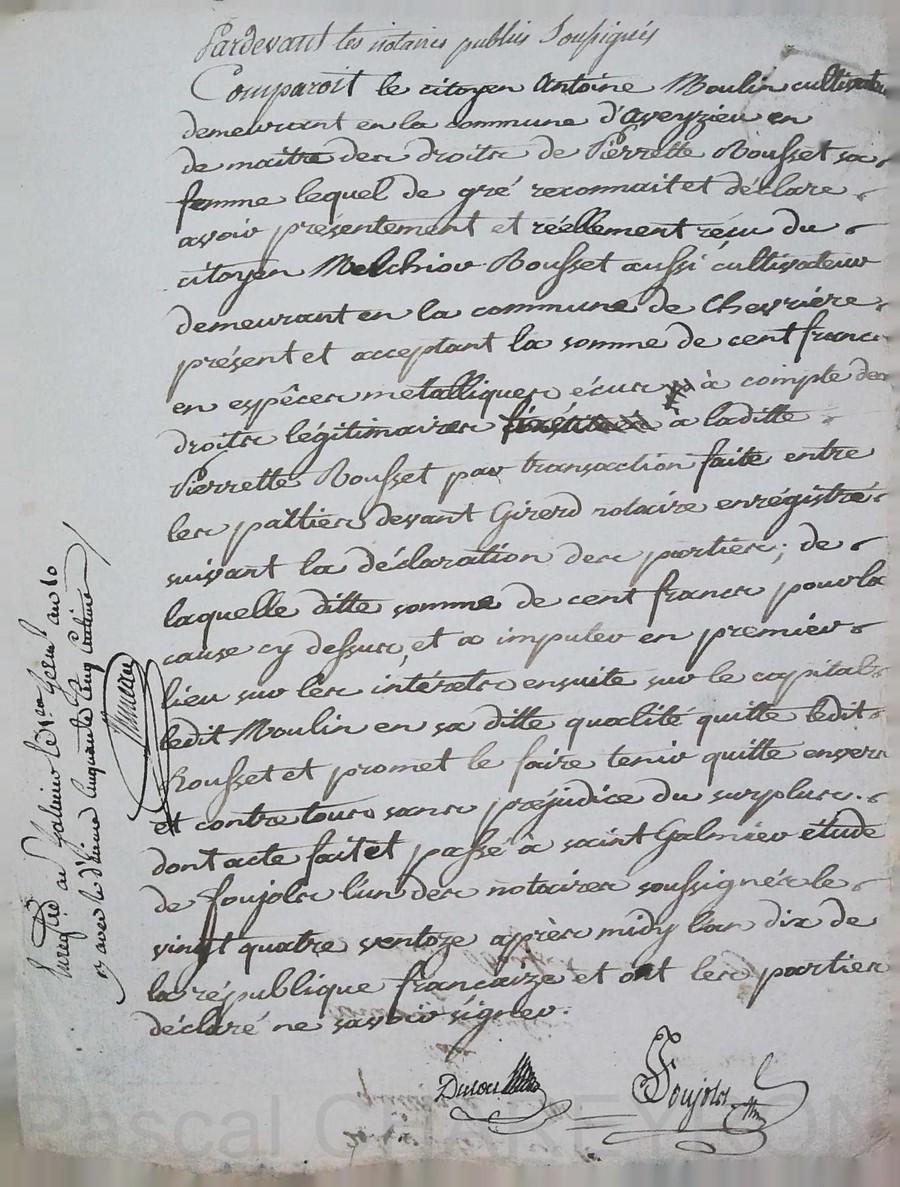 Pardevant les notaires publis Soussignés
Comparoit le citoyen Antoine Moulin cultivateur
demeurant en la commune d'aveyzieu en
de maitre des droits de Pierrette Rousset sa
femme lequel de gré reconnait et déclare
avoir présentement et réellement réçu du
citoyen Melchior Rousset aussi cultivateur
demeurant en la commune de Chevrière
présent et acceptant la somme de cent francs
en espêces metalliques écus à compte des
droits légitimaires à laditte
Pierrette Rousset par transaction faite entre
les patties devant Girerd notaire enrégistré
suivant la déclaration des parties; de
laquelle ditte somme de cent francs pour la
cause cy dessus, et a imputer en premier
lieu sur lès intérets ensuite sur le capital
ledit Moulin en sa ditte qualité quitte ledit
Rousset et promet le faire tenir quitte envers
et contre tous sans préjudice du surplus.
dont acte fait et passé à saint Galmier étude
de foujols l'un des notaires soussignés le
vingt quatre ventoze après midy l'an dix de
la république francaize et ont les parties
déclaré ne savoir signer.
Foujols
Enregtré à Galmier le germ. an 10
avec le d'ixime Cinquante Cinq Centimes
Pascal CHAREYRON